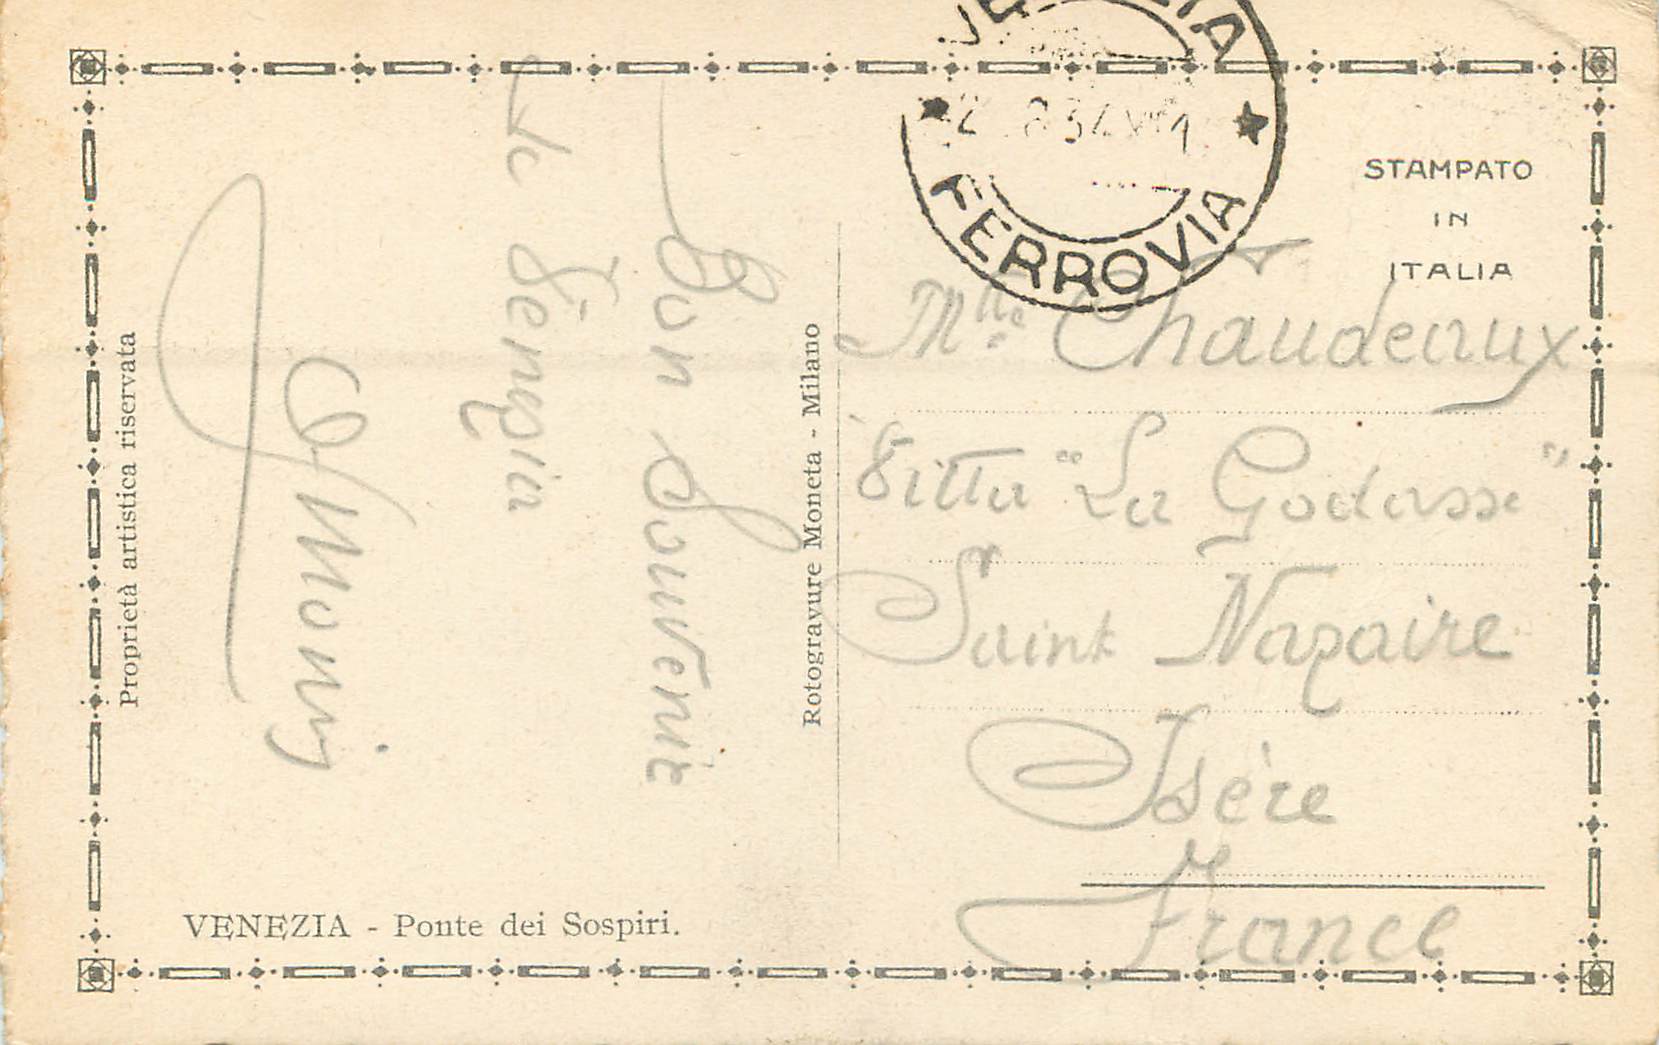 VENEZIA
2 8 34 XII 1
FERROVIA
STAMPATO
IN
ITALIA
Bon Souvenir
de Venezia
Mlle Chaudeaux
Vitta "La Godasse"
Saint Nazaire
Isère
France
Rotogravure Moneta - Milano
Proprietà artistica riservata
VENEZIA - Ponte dei Sospiri.